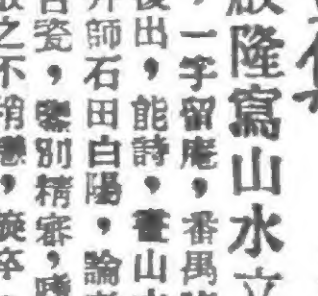 隆寫山水立
，一字留庵，番禺
出，能詩，畫山
師石田白陽，論
瓷，鑒別精審，
之不稍戀，旋卒